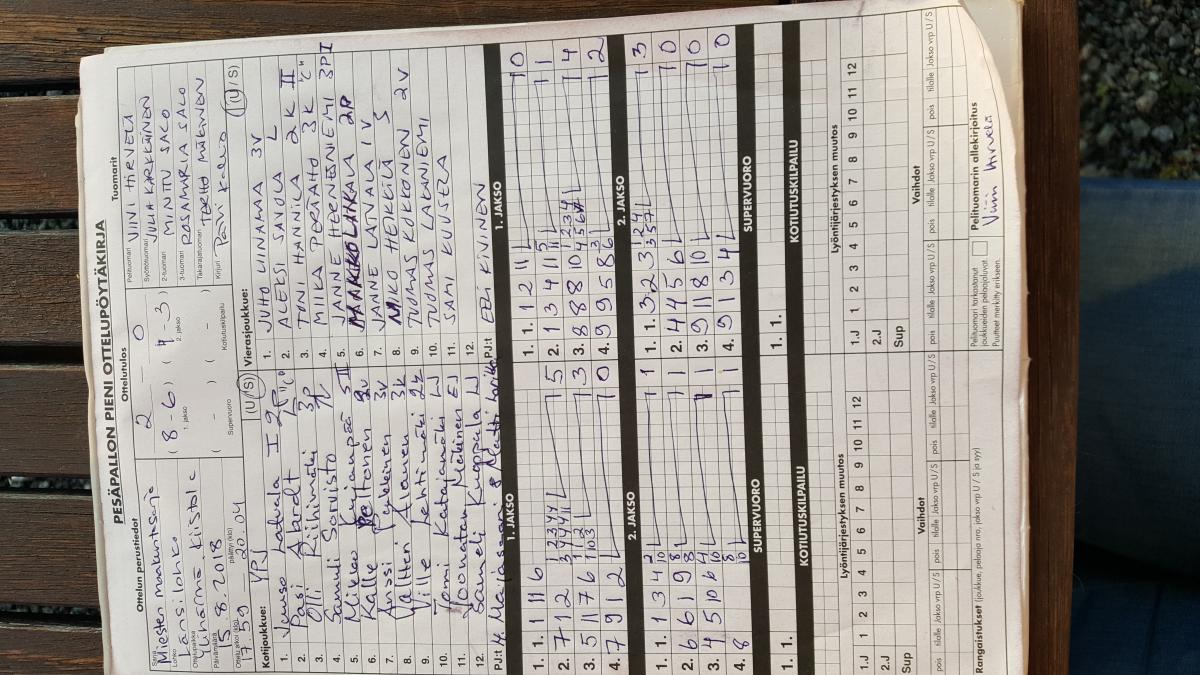 PESÄPALLON PIENI OTTELUPÖYTÄKIRJA
Ottelun perustiedot
Sarja
Miesten maakuntasarja
Lohko
Länsilohko
Ottelupaikka
Ylihärmä Kiistola
Päivämäärä
5.8.2018
Otteluaika (klo)
päättyi (klo)
20.04
Ottelutulos
2 - 0
(8 - 6) (4 - 3)
1. jakso
2. jakso
( - ) ( - )
Supervuoro
Kotiutuskilpailu
Tuomarit
Pelituomari VIINI HIRVELÄ
Syöttötuomari JULIA KARKKAINEN
2-tuomari MINTTU SALO
3-tuomari ROSAMARIA SALO
Takarajatuomari TERHO MÄKINEN
Kirjuri
Kotijoukkue: YPJ
(U/S)
1. Juuso Latvala I 2P
2. Pasi Ahrodt
3. Olli Riihimäki 3P
4. Samuli Sorvisto
5. Mikko Kujanpää S II
6. Kalle Peltonen 2v
7. Anssi Pykkönen 3v
8. Valtteri Alanen 3k
9. Ville Lehtimäki 2k
10. Tomi Katajamäki LJ
11. Joonatan Mäkinen EJ
12. Sameli Kuoppala LJ
PJ:t
Vierasjoukkue:
(U/S)
1. JUHO UINAMAA 3V
2. ALEKSI SAVOLA L
3. TONI HANNILA 2K II
4. MIIKA PERÄAHO 3K "C"
5. JANNE HERNESNIEMI 3P I
6. 2P
7. JANNE LATVALA 1V
8. MIKO HEIKKILÄ S
9. TUOMAS KUKKONEN 2V
10. TUOMAS LAKANIEMI
11. SAMI KUUSELA
12.
PJ:t EELI KIVINEN
1. JAKSO
1. 1. 1 11 6
2. 7 1 2
5
3. 5 11 7 6
3
4. 7 9 1 2
0
2. JAKSO
1. 1. 1 3 4
1
2. 6 6 1 9
1
3. 4 5 10 6
1
4. 8
1
SUPERVUORO
1. 1.
KOTIUTUSKILPAILU
Lyöntijärjestyksen muutos
1 2 3 4 5 6 7 8 9 10 11 12
1.J
2.J
Sup
Vaihdot
pois tilalle Jakso vrp U/S pois tilalle Jakso vrp U/S pois tilalle Jakso vrp U/S
1. JAKSO
1. 1. 1 2 11 11
0
2. 1 3 4 11
1
3. 8 8 8 10
4
4. 9 9 5 8
2
2. JAKSO
1. 1. 3 2 3
3
2. 4 4 5 6
0
3. 9 11 8 10
0
4. 9 1 3 4
0
SUPERVUORO
1. 1.
KOTIUTUSKILPAILU
Lyöntijärjestyksen muutos
1 2 3 4 5 6 7 8 9 10 11 12
1.J
2.J
Sup
Vaihdot
pois tilalle Jakso vrp U/S pois tilalle Jakso vrp U/S pois tilalle Jakso vrp U/S
Rangaistukset (joukkue, pelaaja nro, jakso vrp U / S ja syy)
Pelituomari tarkastanut
joukkueiden pelaajaluvat.
Puutteet merkitty erikseen.
Pelituomarin allekirjoitus
Viini Hirvelä